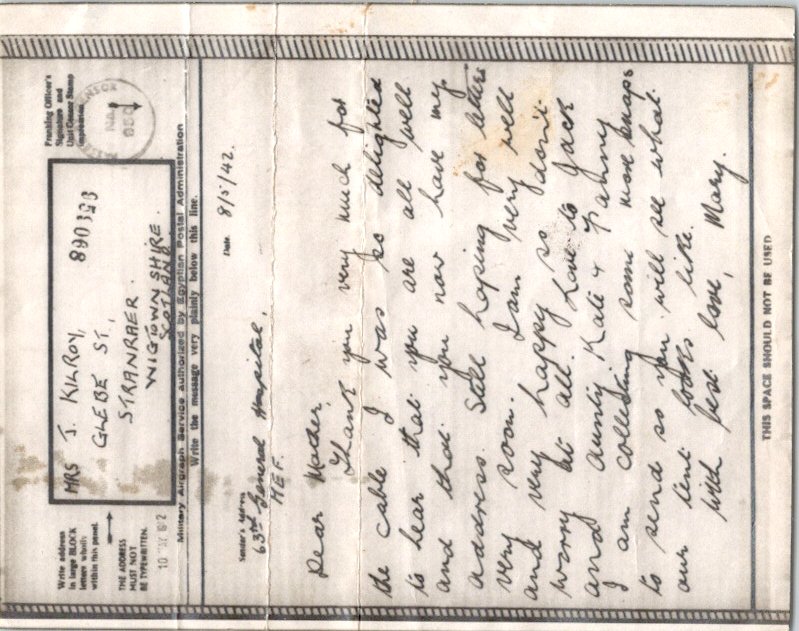 Write address
in large BLOCK
letters wholly
within this panel.
THE ADDRESS
MUST NOT
BE TYPEWRITTEN.
MRS J. KILROY,
GLEBE ST,
STRANRAER.
WIGTOWNSHIRE.
SCOTLAND
Franking Officer's
Signature and
Unit Censor Stamp
Impression
Military Airgraph Service authorized by Egyptian Postal Administration
Write the message very plainly below this line.
Sender's Address
Date 8/5/42.
63rd General Hospital,
MEF.
Dear Mother,
Thank you very much for
the cable I was so delighted
to hear that you are all well
and that you now have my
address. Still hoping for letters
very soon. I am very well
and very happy so don't
worry at all. Love to Jack
and Aunty Kate & Fanny
I am collecting some more snaps
to send so you will see what
our tent looks like.
With best love, Mary.
THIS SPACE SHOULD NOT BE USED